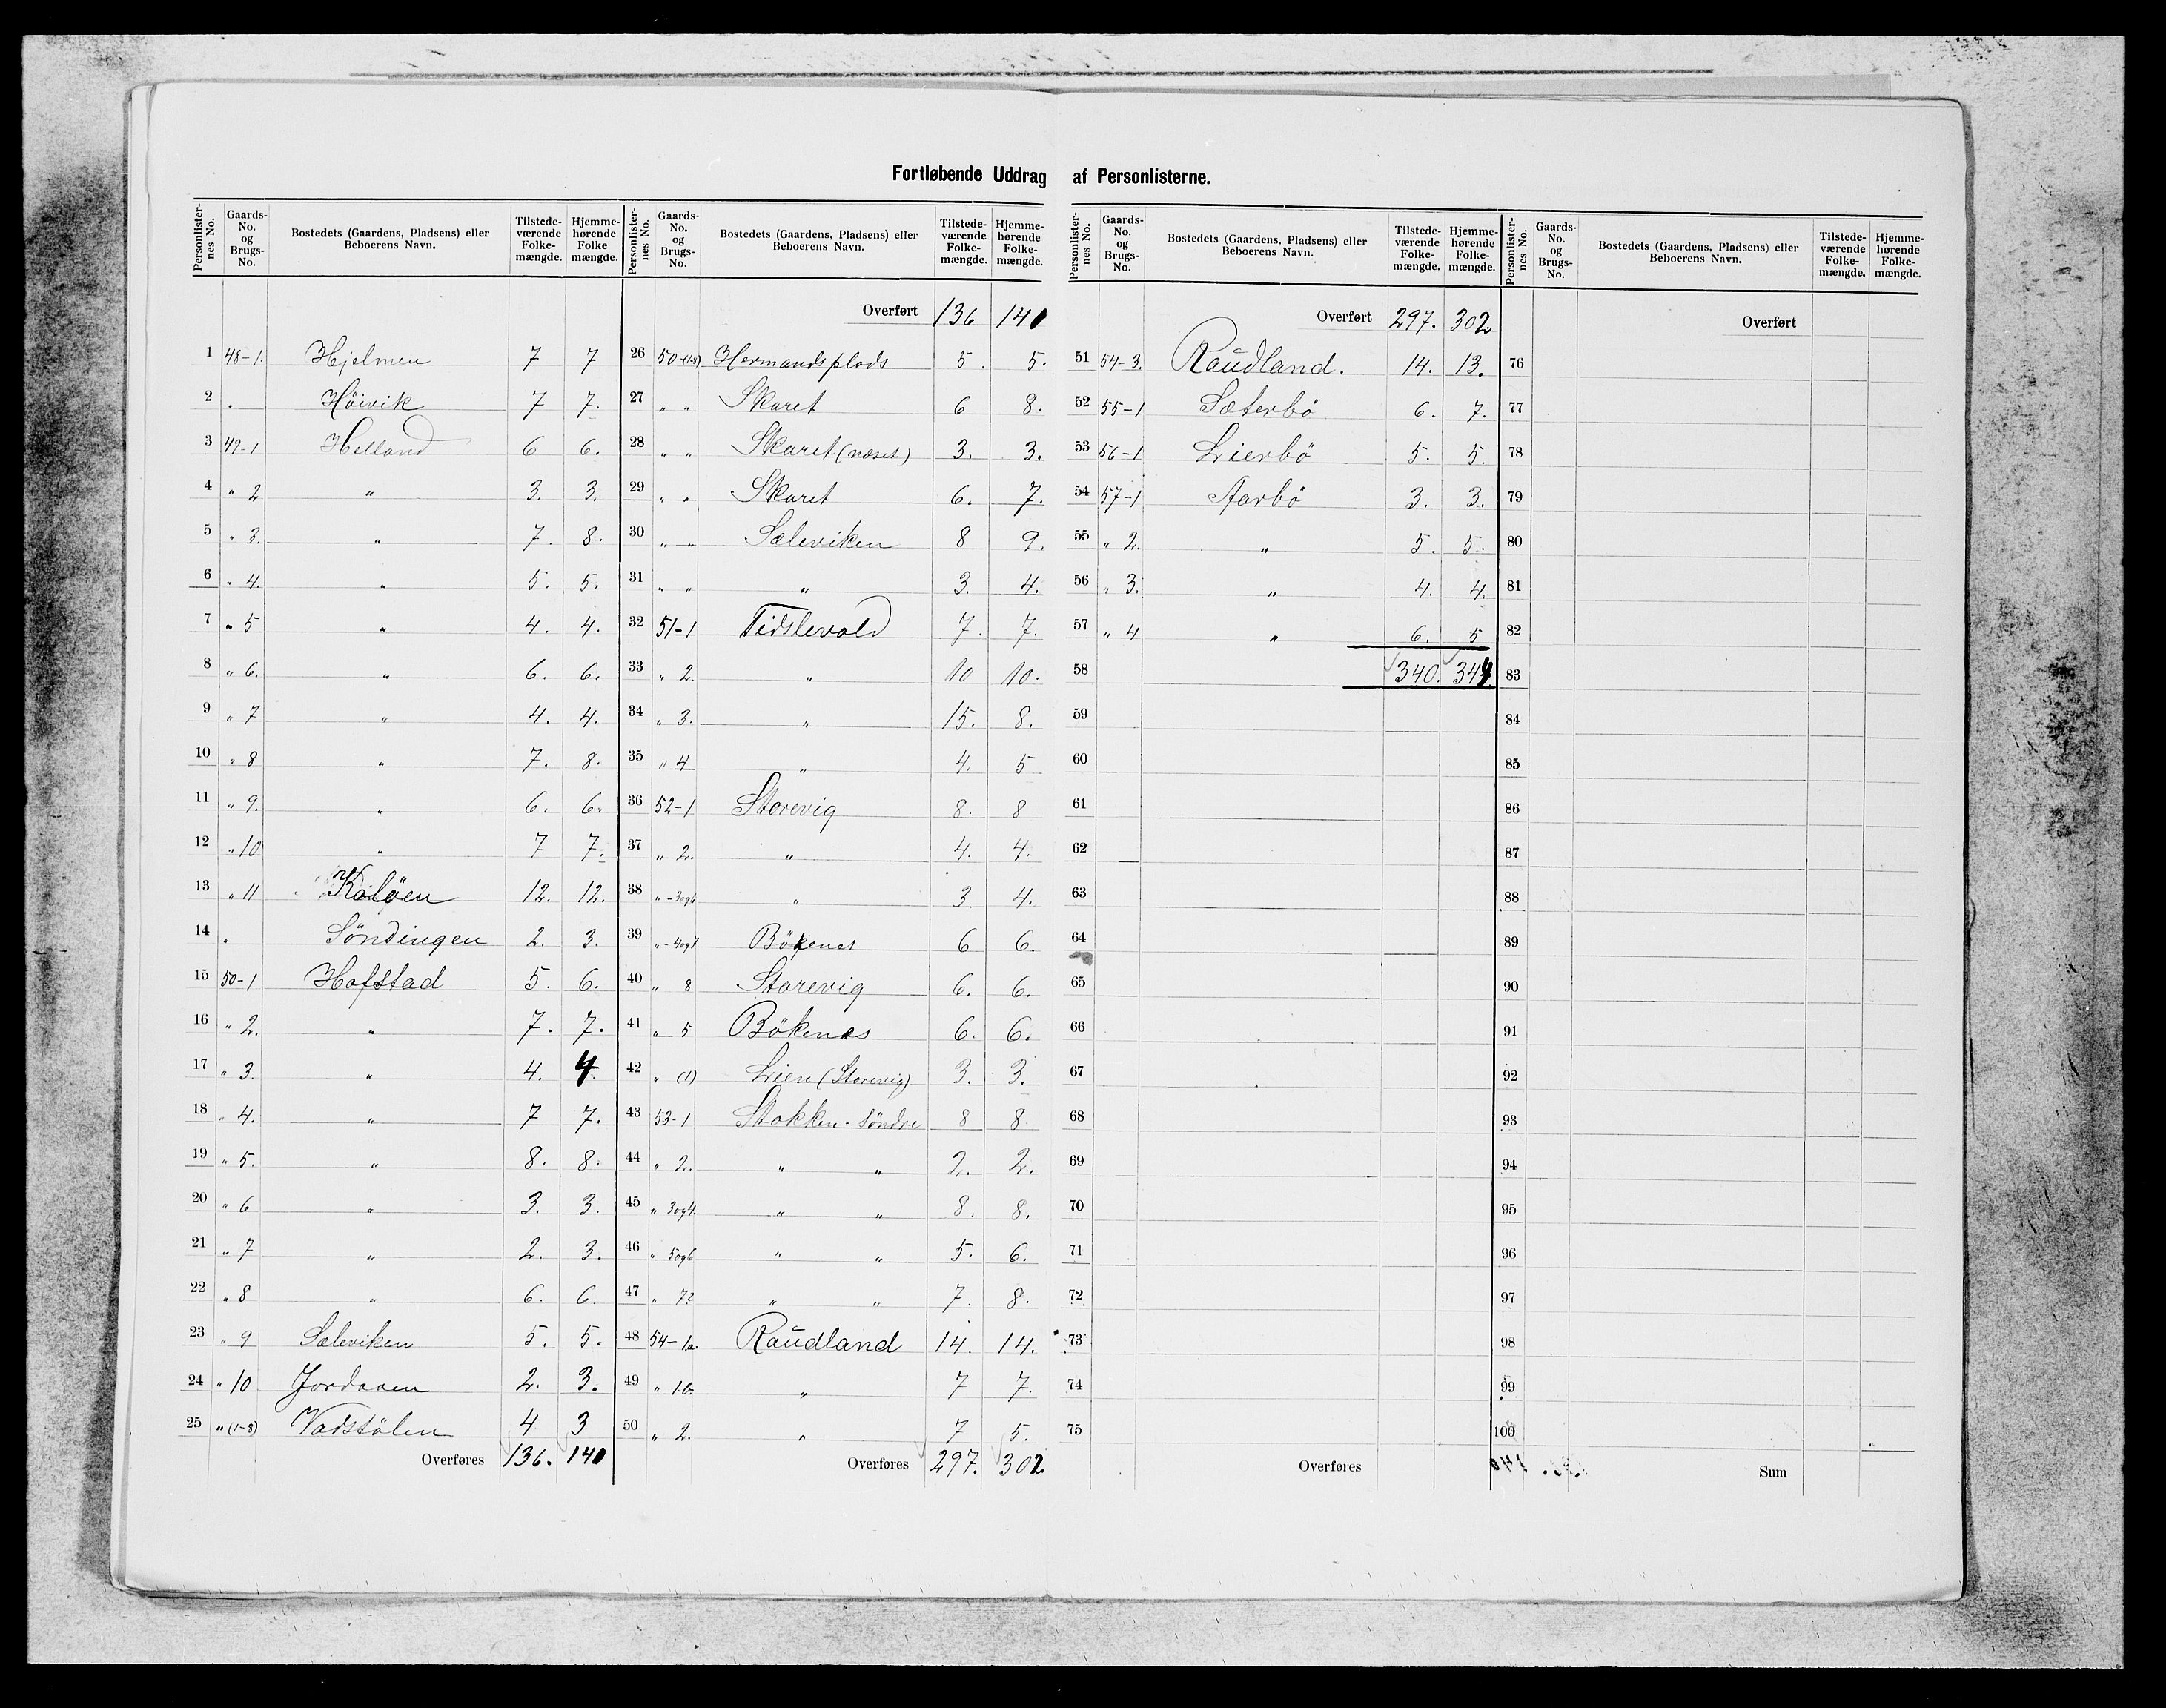 Fortløbende Uddrag af Personlisterne.
Personlisternes No. | Gaards-No. og Brugs-No. | Bostedets (Gaardens, Pladsens) eller Beboerens Navn. | Tilstedeværende Folkemængde. | Hjemmehørende Folke mængde.
1 48-1. Hjelmen 7 7
2 . Höivik 7 7.
3 49-1 Helland 6 6.
4 " 2 " 3. 3.
5 " 3. " 7. 8.
6 " 4. " 5. 5.
7 " 5 " 4. 4.
8 " 6. " 6. 6.
9 " 7 " 4. 4.
10 " 8 " 7. 8.
11 " 9. " 6. 6.
12 " 10 " 7 7.
13 " 11 Kalöen 12. 12.
14 . Söndingen 2. 3.
15 50-1 Hofstad 5. 6.
16 " 2. " 7. 7.
17 " 3. " 4. 4.
18 " 4. " 7 7.
19 " 5. " 8. 8.
20 " 6 " 3. 3.
21 " 7 " 2. 3.
22 " 8 " 6. 6
23 " 9 Sæleviken 5. 5.
24 " 10 Jordaren 2. 3.
25 " (1-8) Vadstölen 4 3
Overføres 136. 140
Personlisternes No. | Gaards-No. og Brugs-No. | Bostedets (Gaardens, Pladsens) eller Beboerens Navn. | Tilstedeværende Folkemængde. | Hjemmehørende Folkemængde.
Overført 136 140
26 50-(1-8) Hermandsplads 5. 5.
27 " " Skaret 6 8.
28 " " Skaret (næset) 3. 3.
29 " " Skaret 6. 7.
30 " " Sæleviken 8 9.
31 " " " 3. 4.
32 51-1 Tidslevold 7. 7.
33 " 2. " 10 10.
34 " 3. " 15. 8.
35 " 4 " 4. 5
36 52-1 Storevig 8. 8
37 " 2. " 4. 4.
38 " -3og6 " 3. 4.
39 " -4og7 Bökenes 6 6.
40 " 8 Storevig 6. 6.
41 " 5 Bökenes 6. 6.
42 " (1) Lien (Storevig) 3. 3.
43 53-1 Stokken - Söndre 8 8
44 " 2. " " 2. 2.
45 " 3og4. " " 8. 8.
46 " 5og6 " " 5. 6.
47 " 7 " " 7. 8.
48 54-1a. Raudland 14. 14.
49 " 1 " 7 7.
50 " 2. " 7 5.
Overføres 297. 302
Personlisternes No. | Gaards-No. og Brugs-No. | Bostedets (Gaardens, Pladsens) eller Beboerens Navn. | Tilstedeværende Folkemængde. | Hjemmehørende Folkemængde.
Overført 297. 302
51 54-3. Raudland. 14. 13.
52 55-1 Sæterbö 6. 7.
53 56-1 Lierbö 5. 5.
54 57-1 Aarbö 3. 3.
55 " 2. " 5. 5.
56 " 3. " 4. 4.
57 " 4 " 6. 5
58 340. 344.
59
60
61
62
63
64
65
66
67
68
69
70
71
72
73
74
75
Overføres
Personlisternes No. | Gaards-No. og Brugs-No. | Bostedets (Gaardens, Pladsens) eller Beboerens Navn. | Tilstedeværende Folkemængde. | Hjemmehørende Folkemængde.
Overført
76
77
78
79
80
81
82
83
84
85
86
87
88
89
90
91
92
93
94
95
96
97
98
99
100
Sum